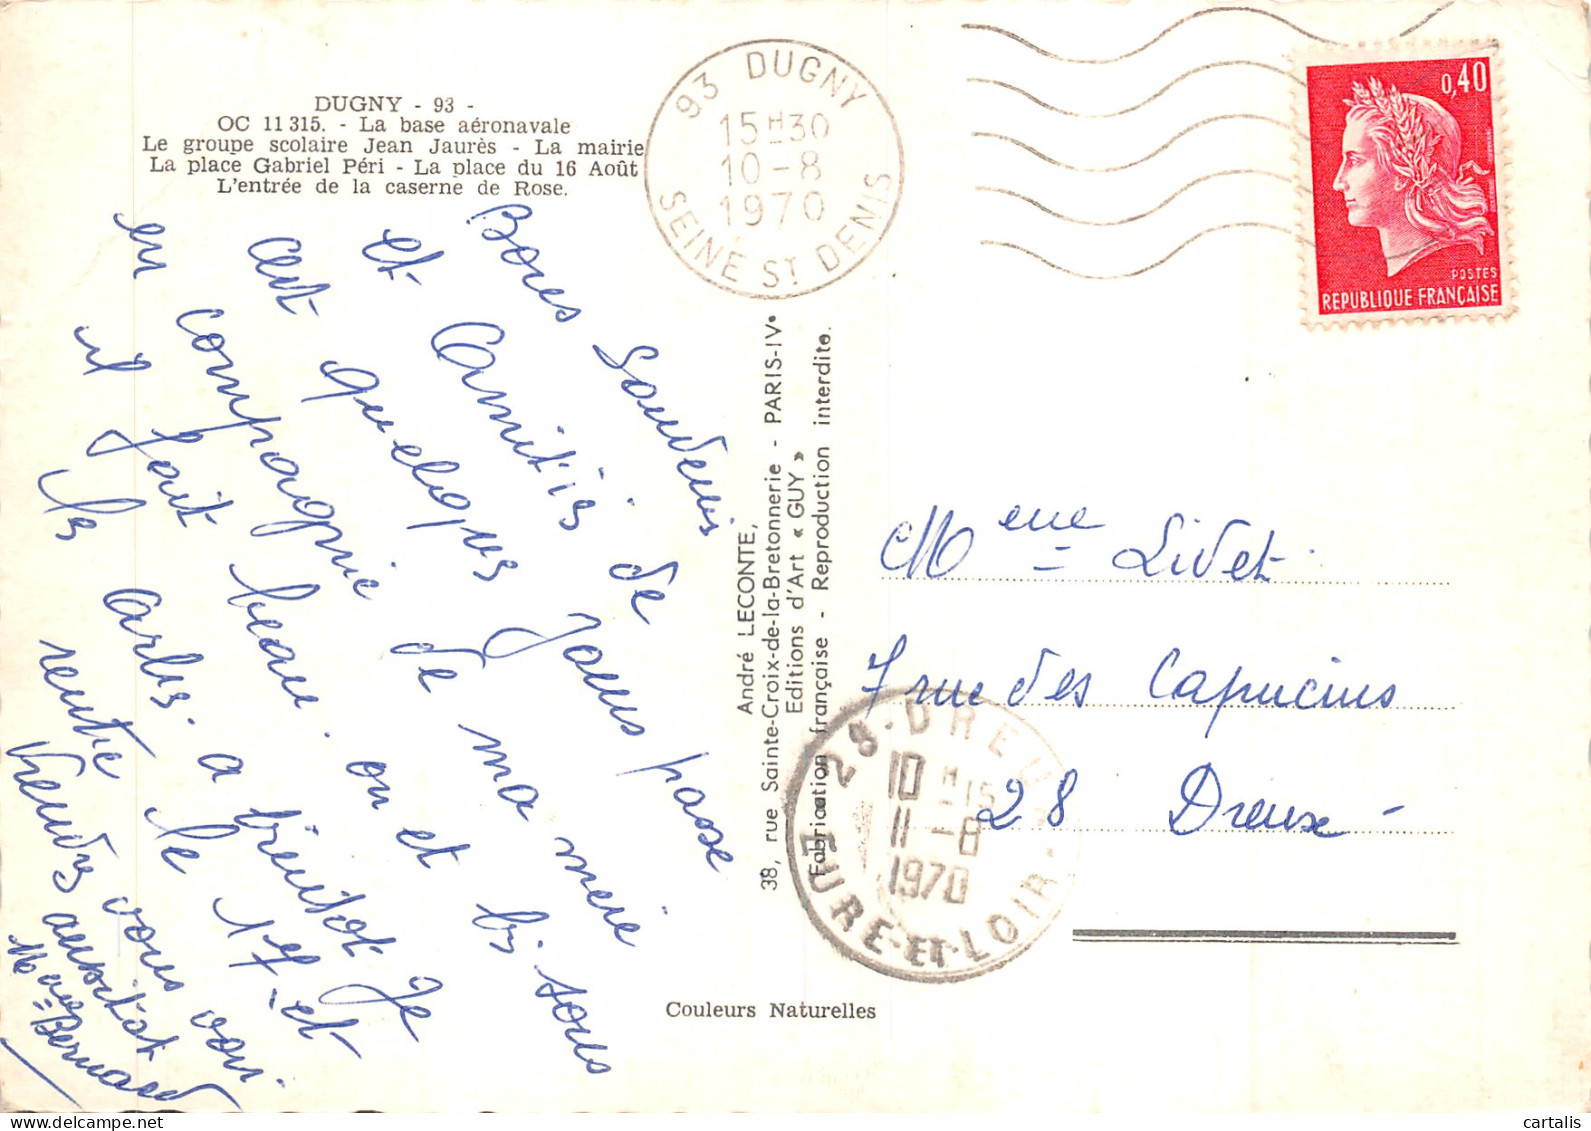 DUGNY - 93 -
OC 11 315. - La base aéronavale
Le groupe scolaire Jean Jaurès - La mairie
La place Gabriel Péri - La place du 16 Août
L'entrée de la caserne de Rose.
93 DUGNY
15 H 30
10 - 8
1970
SEINE ST DENIS
0,40
POSTES
REPUBLIQUE FRANÇAISE
Bones Souvenis
et Amitiés de
cent quelques Jours passe
en compagnie de ma mère
il fait beau. on et bi sous
les arbes. a bientot Je
rentré le 17 et
viendres vous voir
aussitat
Mme Bernard
André LECONTE,
38, rue Sainte-Croix-de-la-Bretonnerie - PARIS-IVe
Editions d'Art « GUY »
Fabrication française - Reproduction interdite.
Mme Livet
7 rue des Capucins
28 Dreux
28 - DREUX
10 H 15
11 - 8
1970
EURE-ET-LOIR
Couleurs Naturelles
cartalis